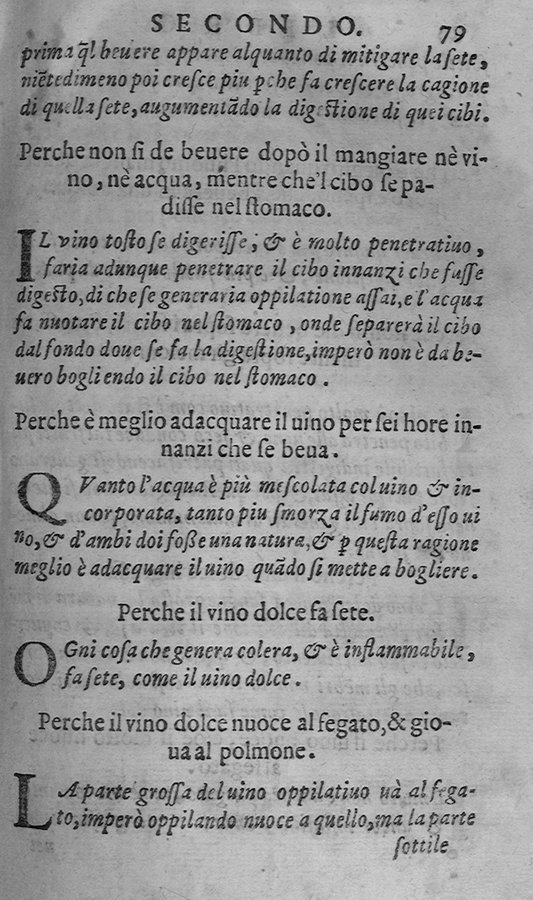 SECONDO. 79
prima q̃l beuere appare alquanto di mitigare la ſete,
niẽtedimeno poi creſce piu ꝑche fa creſcere la cagione
di quella ſete, augumentãdo la digeſtione di quei cibi.
Perche non ſi de beuere dopò il mangiare nè vi-
no, nè acqua, mentre che'l cibo ſe pa-
diſſe nel ſtomaco.
IL vino toſto ſe digeriſſe, & è molto penetratiuo,
faria adunque penetrare il cibo innanzi che fuſſe
digeſto, di che ſe generaria oppilatione aſſai, e l'acqua
fa nuotare il cibo nel ſtomaco, onde ſeparerà il cibo
dal fondo doue ſe fa la digeſtione, imperò non è da be-
uero bogliendo il cibo nel ſtomaco.
Perche è meglio adacquare il uino per ſei hore in-
nanzi che ſe beua.
QVanto l'acqua è più meſcolata col uino & in-
corporata, tanto piu ſmorza il fumo d'eſſo ui
no, & d'ambi doi foſſe una natura, & ꝑ queſta ragione
meglio è adacquare il uino quãdo ſi mette a bogliere.
Perche il vino dolce fa ſete.
OGni coſa che genera colera, & è inflammabile,
fa ſete, come il uino dolce.
Perche il vino dolce nuoce al fegato, & gio-
ua al polmone.
LA parte groſſa del uino oppilatiuo uà al fega-
to, imperò oppilando nuoce a quello, ma la parte
ſottile